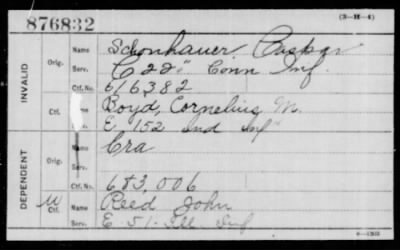 876832
(3-H-4)
INVALID
Orig.
Name Schonhauer Caspar
Serv. C 22" Conn Inf.
Ctf. No. 616382
Ctf.
Name Boyd, Cornelius M.
Serv. E 152 Ind Inf
DEPENDENT
Orig.
Name Cra
Serv.
Ctf. No. 683,006
Ctf.
Name Reed John
Serv. E-51-Ill. Inf